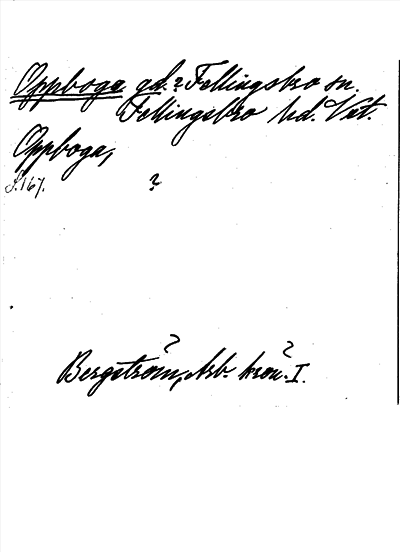 Oppboga gd.? Fellingsbro sn.
Fellingsbro hd. Vstm.
Oppboga,
S. 167. ?
Bergström, Arb. krön. I.